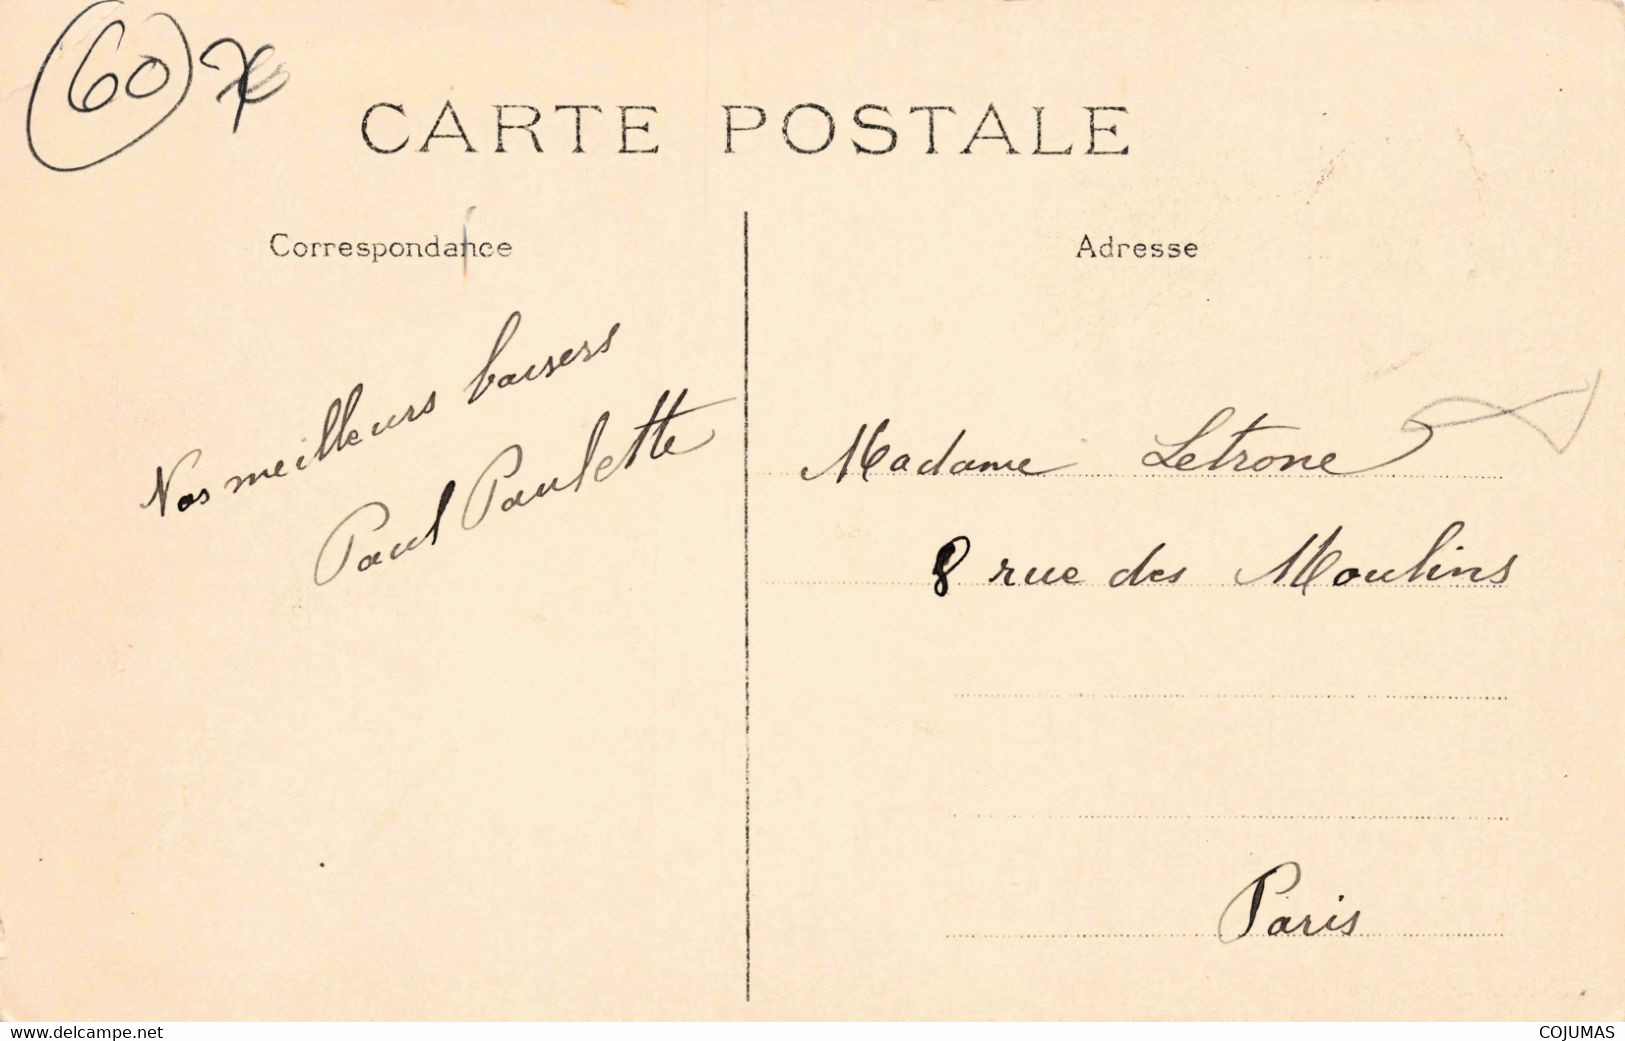 60
CARTE POSTALE
Correspondance
Adresse
Nos meilleurs baisers
Paul Paulette
Madame Letrone
8 rue des Moulins
Paris
www.delcampe.net
COJUMAS